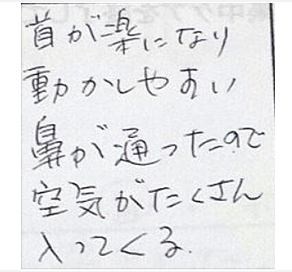 首が楽になり
動かしやすい
鼻が通ったので
空気がたくさん
入ってくる.